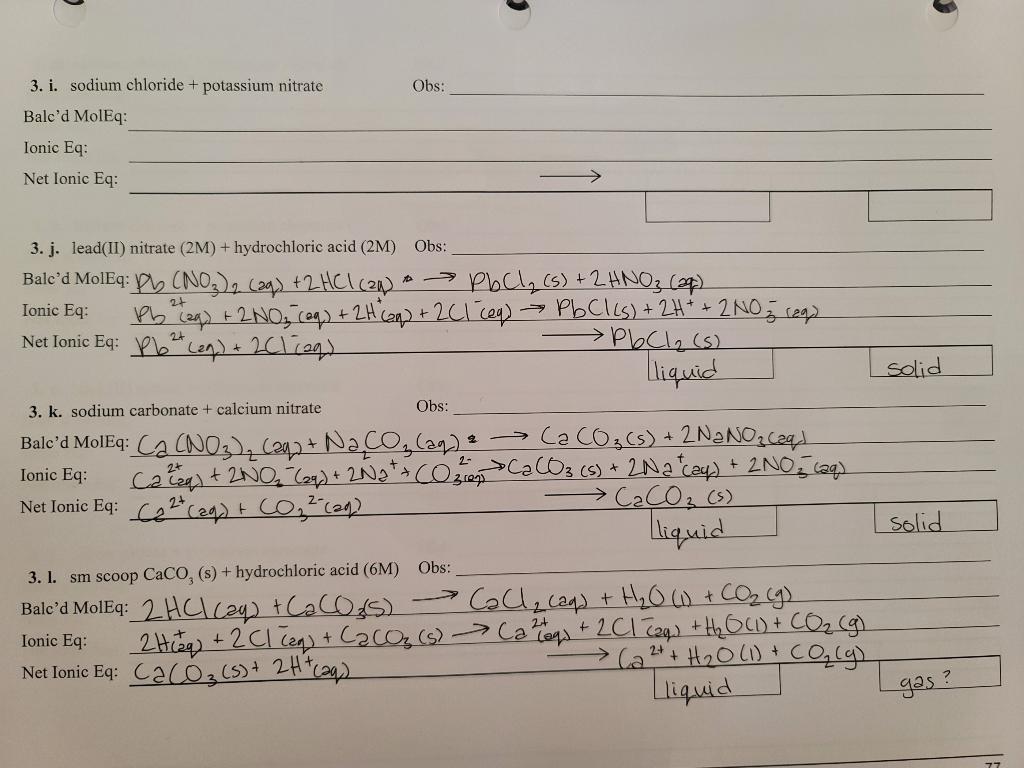 3. i. sodium chloride + potassium nitrate Obs:
Balc'd MolEq:
Ionic Eq:
Net Ionic Eq: →
3. j. lead(II) nitrate (2M) + hydrochloric acid (2M) Obs:
Balc'd MolEq: Pb(NO₃)₂ (aq) + 2HCl (aq) → PbCl₂ (s) + 2HNO₃ (aq)
Ionic Eq: Pb²⁺(aq) + 2NO₃⁻(aq) + 2H⁺(aq) + 2Cl⁻(aq) → PbCl(s) + 2H⁺ + 2NO₃⁻(aq)
Net Ionic Eq: Pb²⁺(aq) + 2Cl⁻(aq) → PbCl₂ (s)
liquid solid
3. k. sodium carbonate + calcium nitrate Obs:
Balc'd MolEq: Ca(NO₃)₂ (aq) + Na₂CO₃ (aq) → CaCO₃(s) + 2NaNO₃(aq)
Ionic Eq: Ca²⁺(aq) + 2NO₃⁻(aq) + 2Na⁺ + CO₃²⁻(aq) → CaCO₃ (s) + 2Na⁺(aq) + 2NO₃⁻(aq)
Net Ionic Eq: Ca²⁺(aq) + CO₃²⁻(aq) → CaCO₃ (s)
liquid solid
3. l. sm scoop CaCO₃ (s) + hydrochloric acid (6M) Obs:
Balc'd MolEq: 2HCl(aq) + CaCO₃(s) → CaCl₂(aq) + H₂O(l) + CO₂(g)
Ionic Eq: 2H⁺(aq) + 2Cl⁻(aq) + CaCO₃(s) → Ca²⁺(aq) + 2Cl⁻(aq) + H₂O(l) + CO₂(g)
Net Ionic Eq: CaCO₃(s) + 2H⁺(aq) → Ca²⁺ + H₂O(l) + CO₂(g)
liquid gas?
77